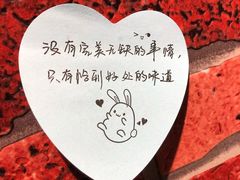 没有完美无缺的事情，
只有恰到好处的味道